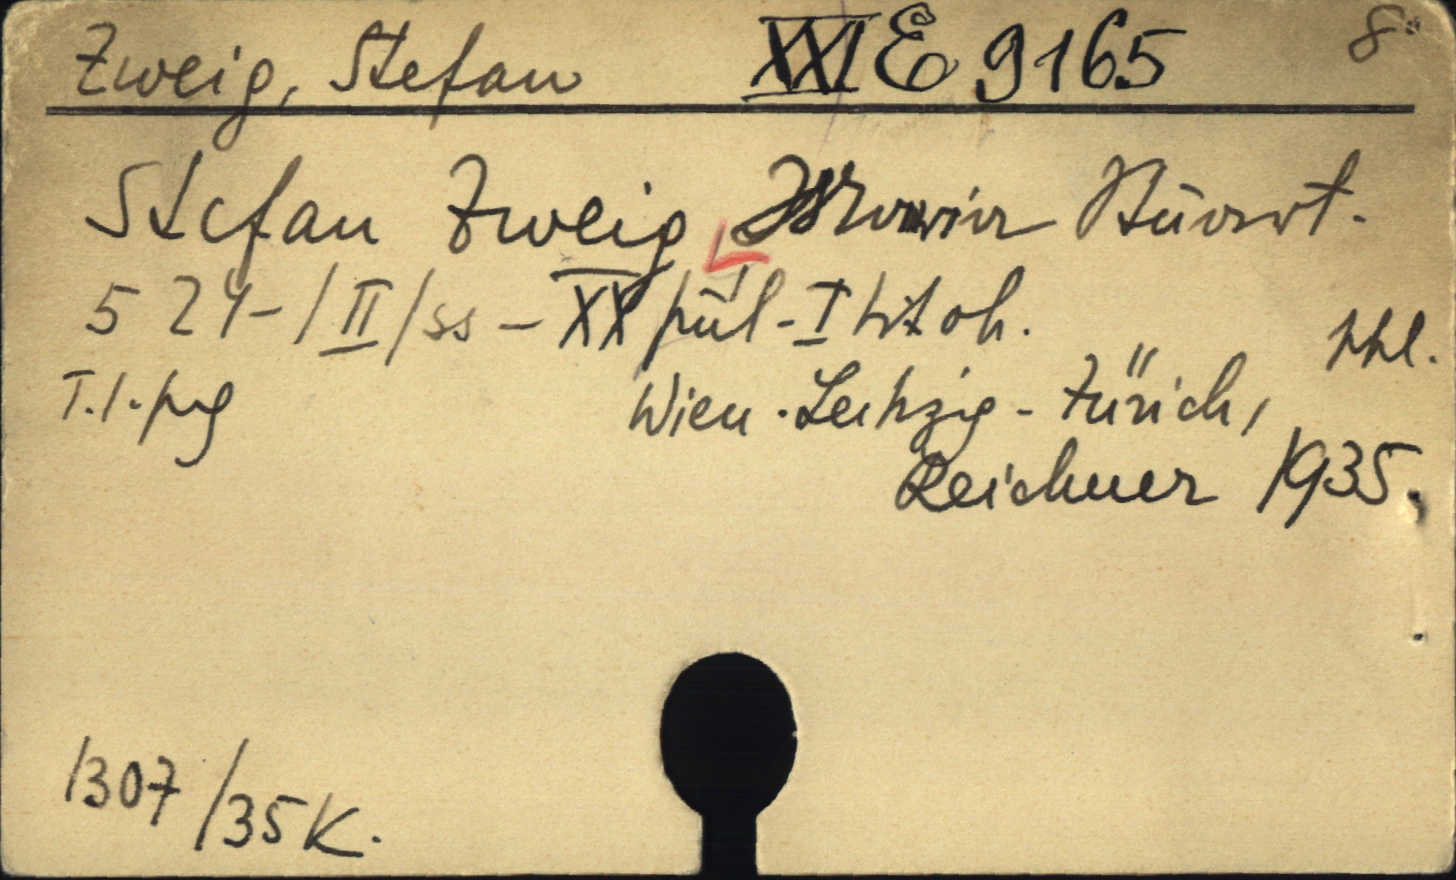 Zweig, Stefan XXI E 9165 8°
Stefan Zweig Stuart.
524-/II/ss - XX pül - I
T.1. prg Wien-Leipzig-Zürich,
Reichner 1935.
1307/35K.